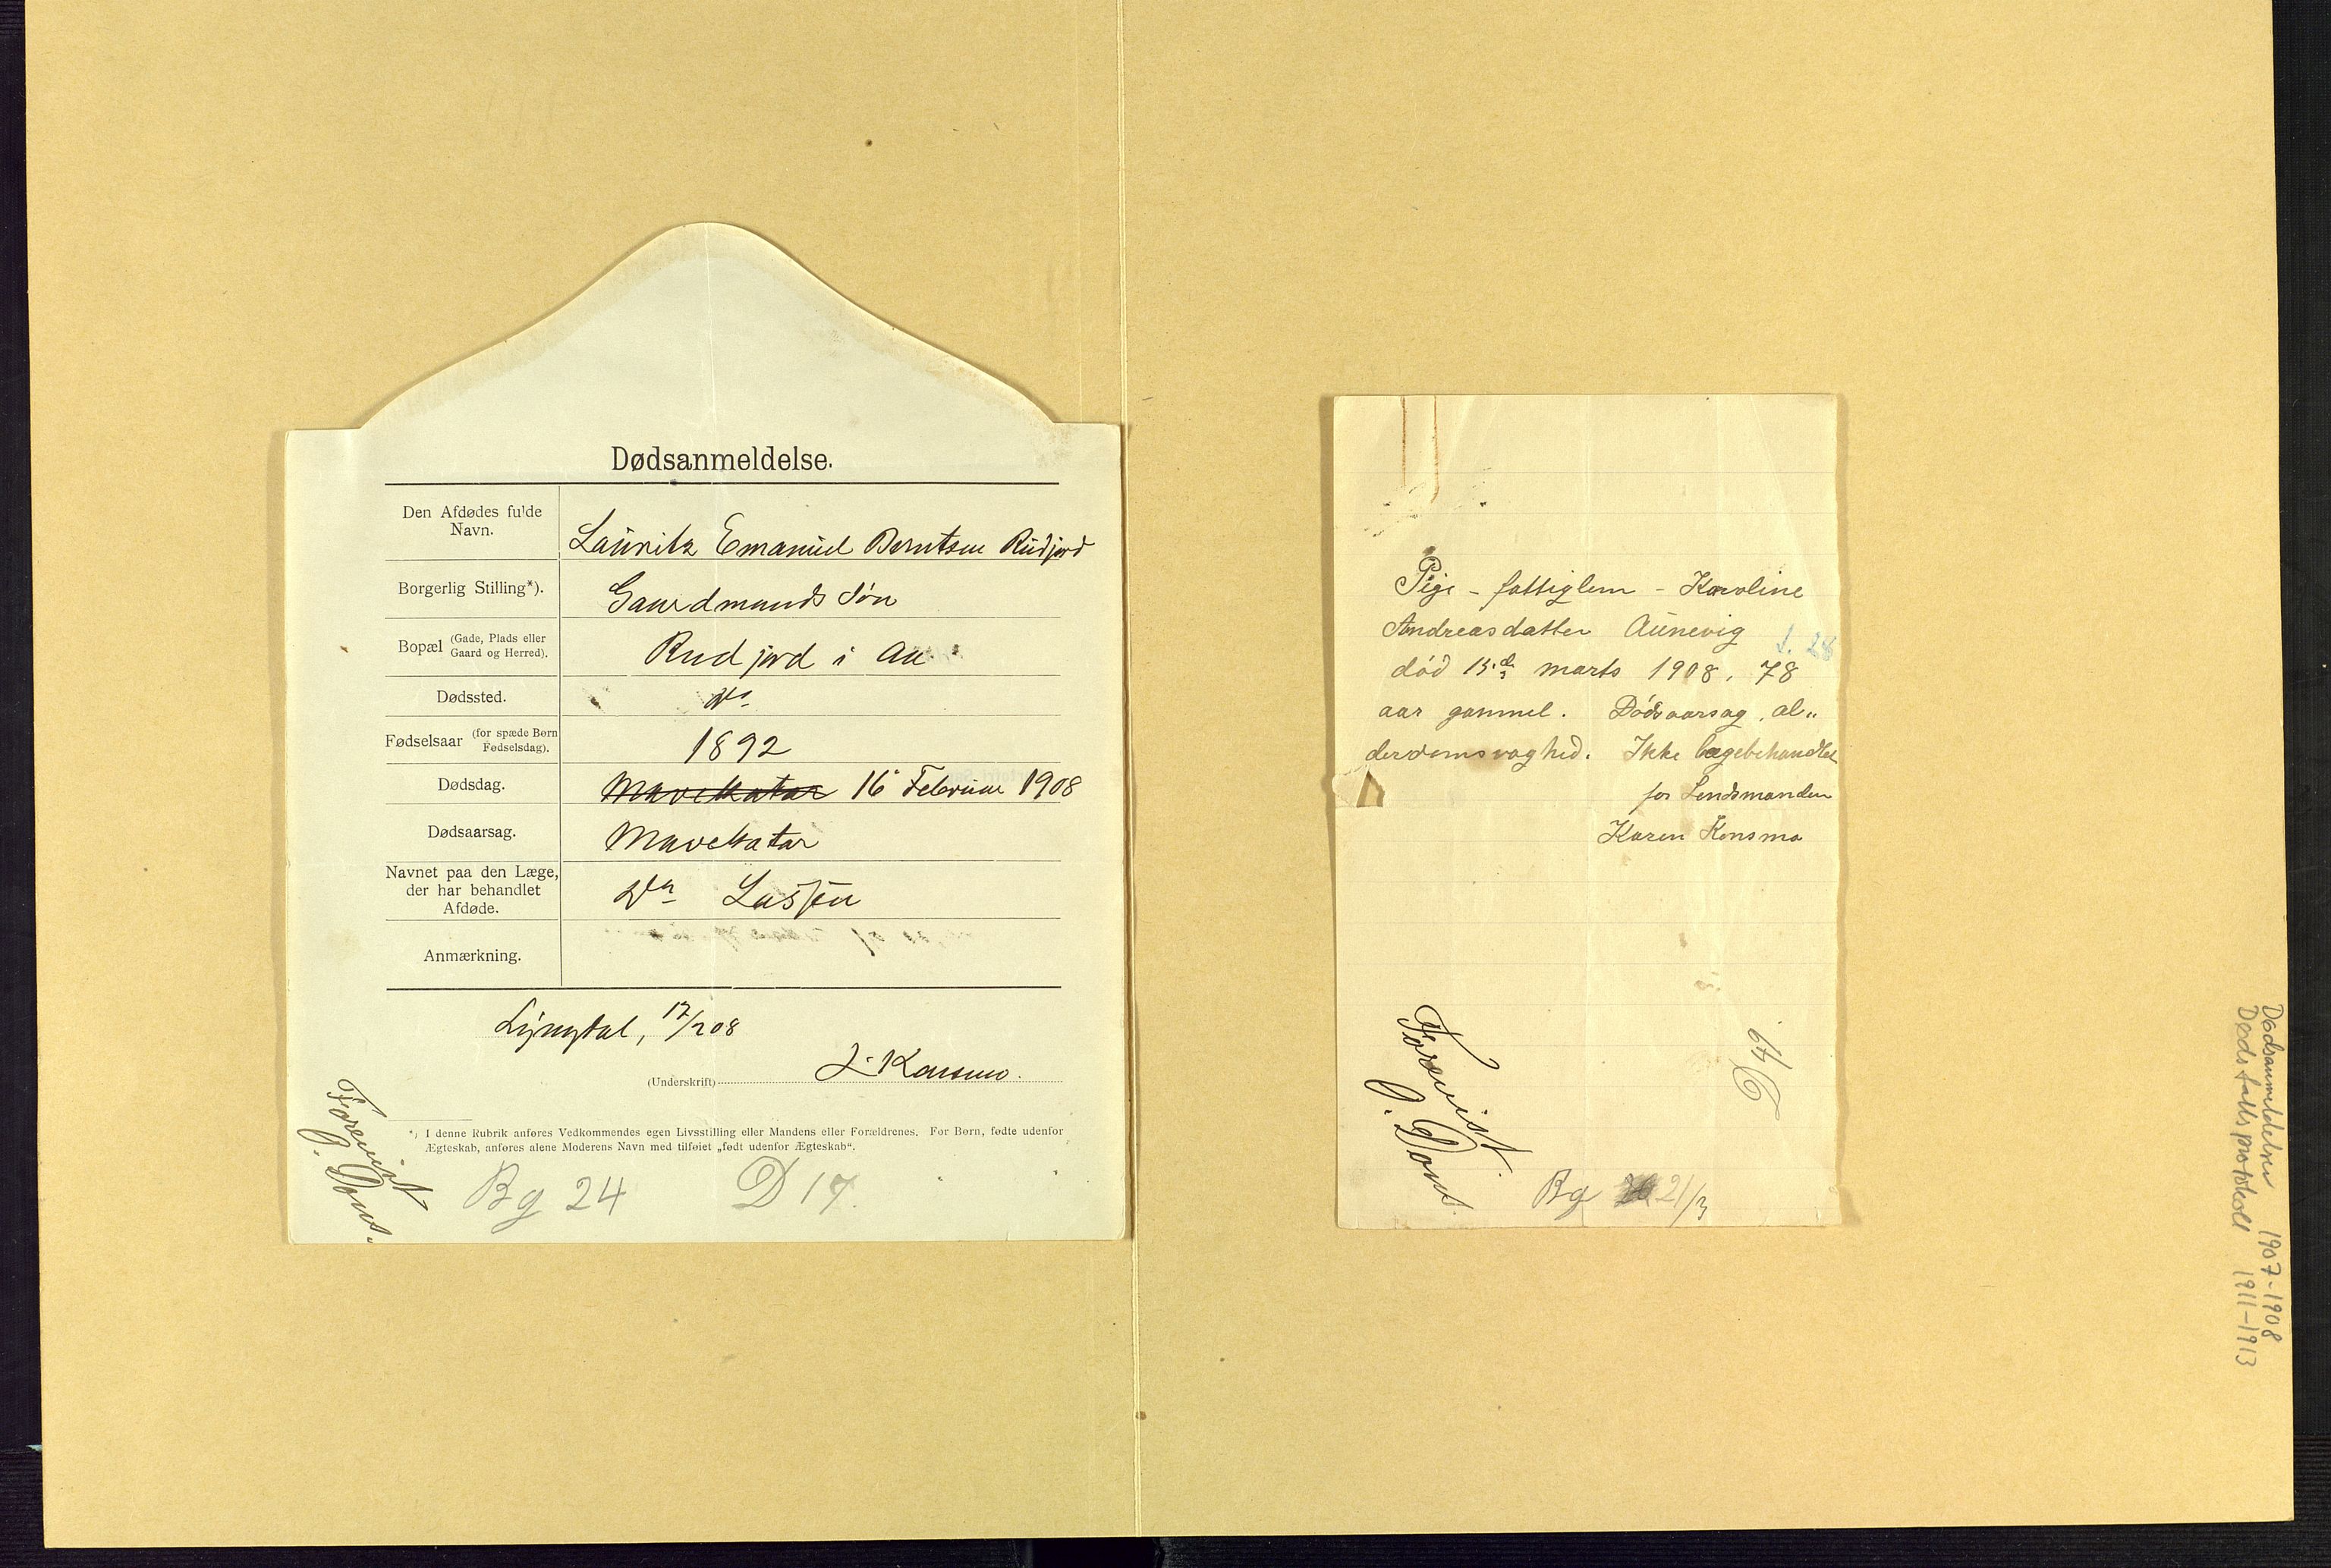 Dødsanmeldelse.
Den Afdødes fulde Navn. Lauritz Emanuel Berntsen Rudjord
Borgerlig Stilling*). Gaardmands Søn
Bopæl (Gade, Plads eller Gaard og Herred). Rudjord i Au
Dødssted. Do
Fødselsaar (for spæde Børn Fødselsdag). 1892
Dødsdag. Mavekatar 16 Februar 1908
Dødsaarsag. Mavekatar
Navnet paa den Læge, der har behandlet Afdøde. Dr Lassen
Anmærkning.
Lyngdal, 17/2 08
(Underskrift) Konsmo.
*) I denne Rubrik anføres Vedkommendes egen Livsstilling eller Mandens eller Forældrenes. For Børn, fødte udenfor
Ægteskab, anføres alene Moderens Navn med tilføiet „født udenfor Ægteskab“.
Bg 24 D 17.
Forevist
J. Dons.
Pige - fattiglem - Karoline
Andreasdatter Aunevig
f. 28
død 13.de marts 1908, 78
aar gammel. Dödsaarsag, al„
derdomsvaghed. Ikke lægebehandlet
for Lendsmanden
Karen Konsmo
Forevist.
J. Dons.
Bg 21/3
Dødsanmeldelser 1907-1908
Dødsfallsprotokoll 1911-1913